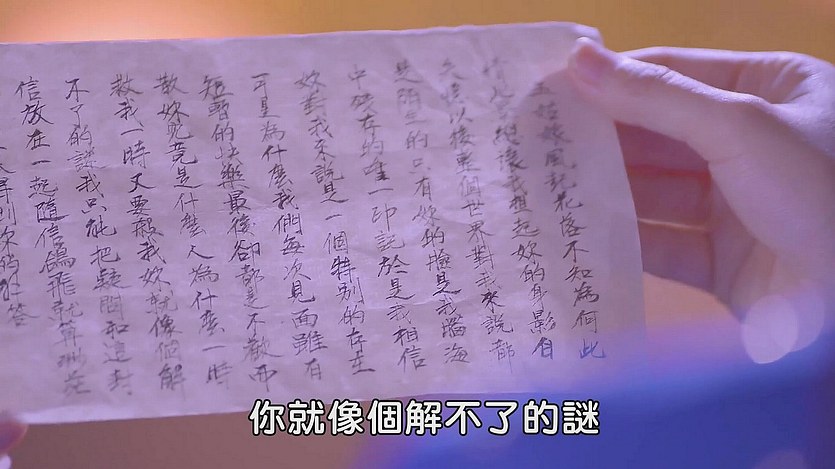 玉姑娘風起花落不知為何此
時人總讓我想起妳的身影自
失憶以後整個世界對我來說都
是陌生的只有妳的臉是我腦海
中殘存的唯一印記於是我相信
妳對我來說是一個特別的存在
可是為什麼我們每次見面雖有
短暫的快樂最後卻都是不歡而
散妳究竟是什麼人為什麼一時
救我一時又要殺我妳就像個解
不了的謎我只能把疑問和這封
信放在一起隨信鴿飛就算
得到你的回答
你就像個解不了的謎